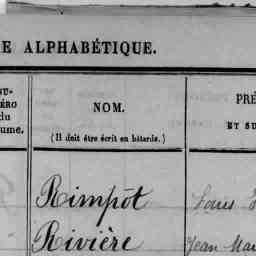 E ALPHABÉTIQUE.
NU-
ÉRO
du
ume.
NOM.
(Il doit être écrit en bâtarde.)
PRÉ
ET SU
Rimpôt
Louis
Rivière
Jean Mar